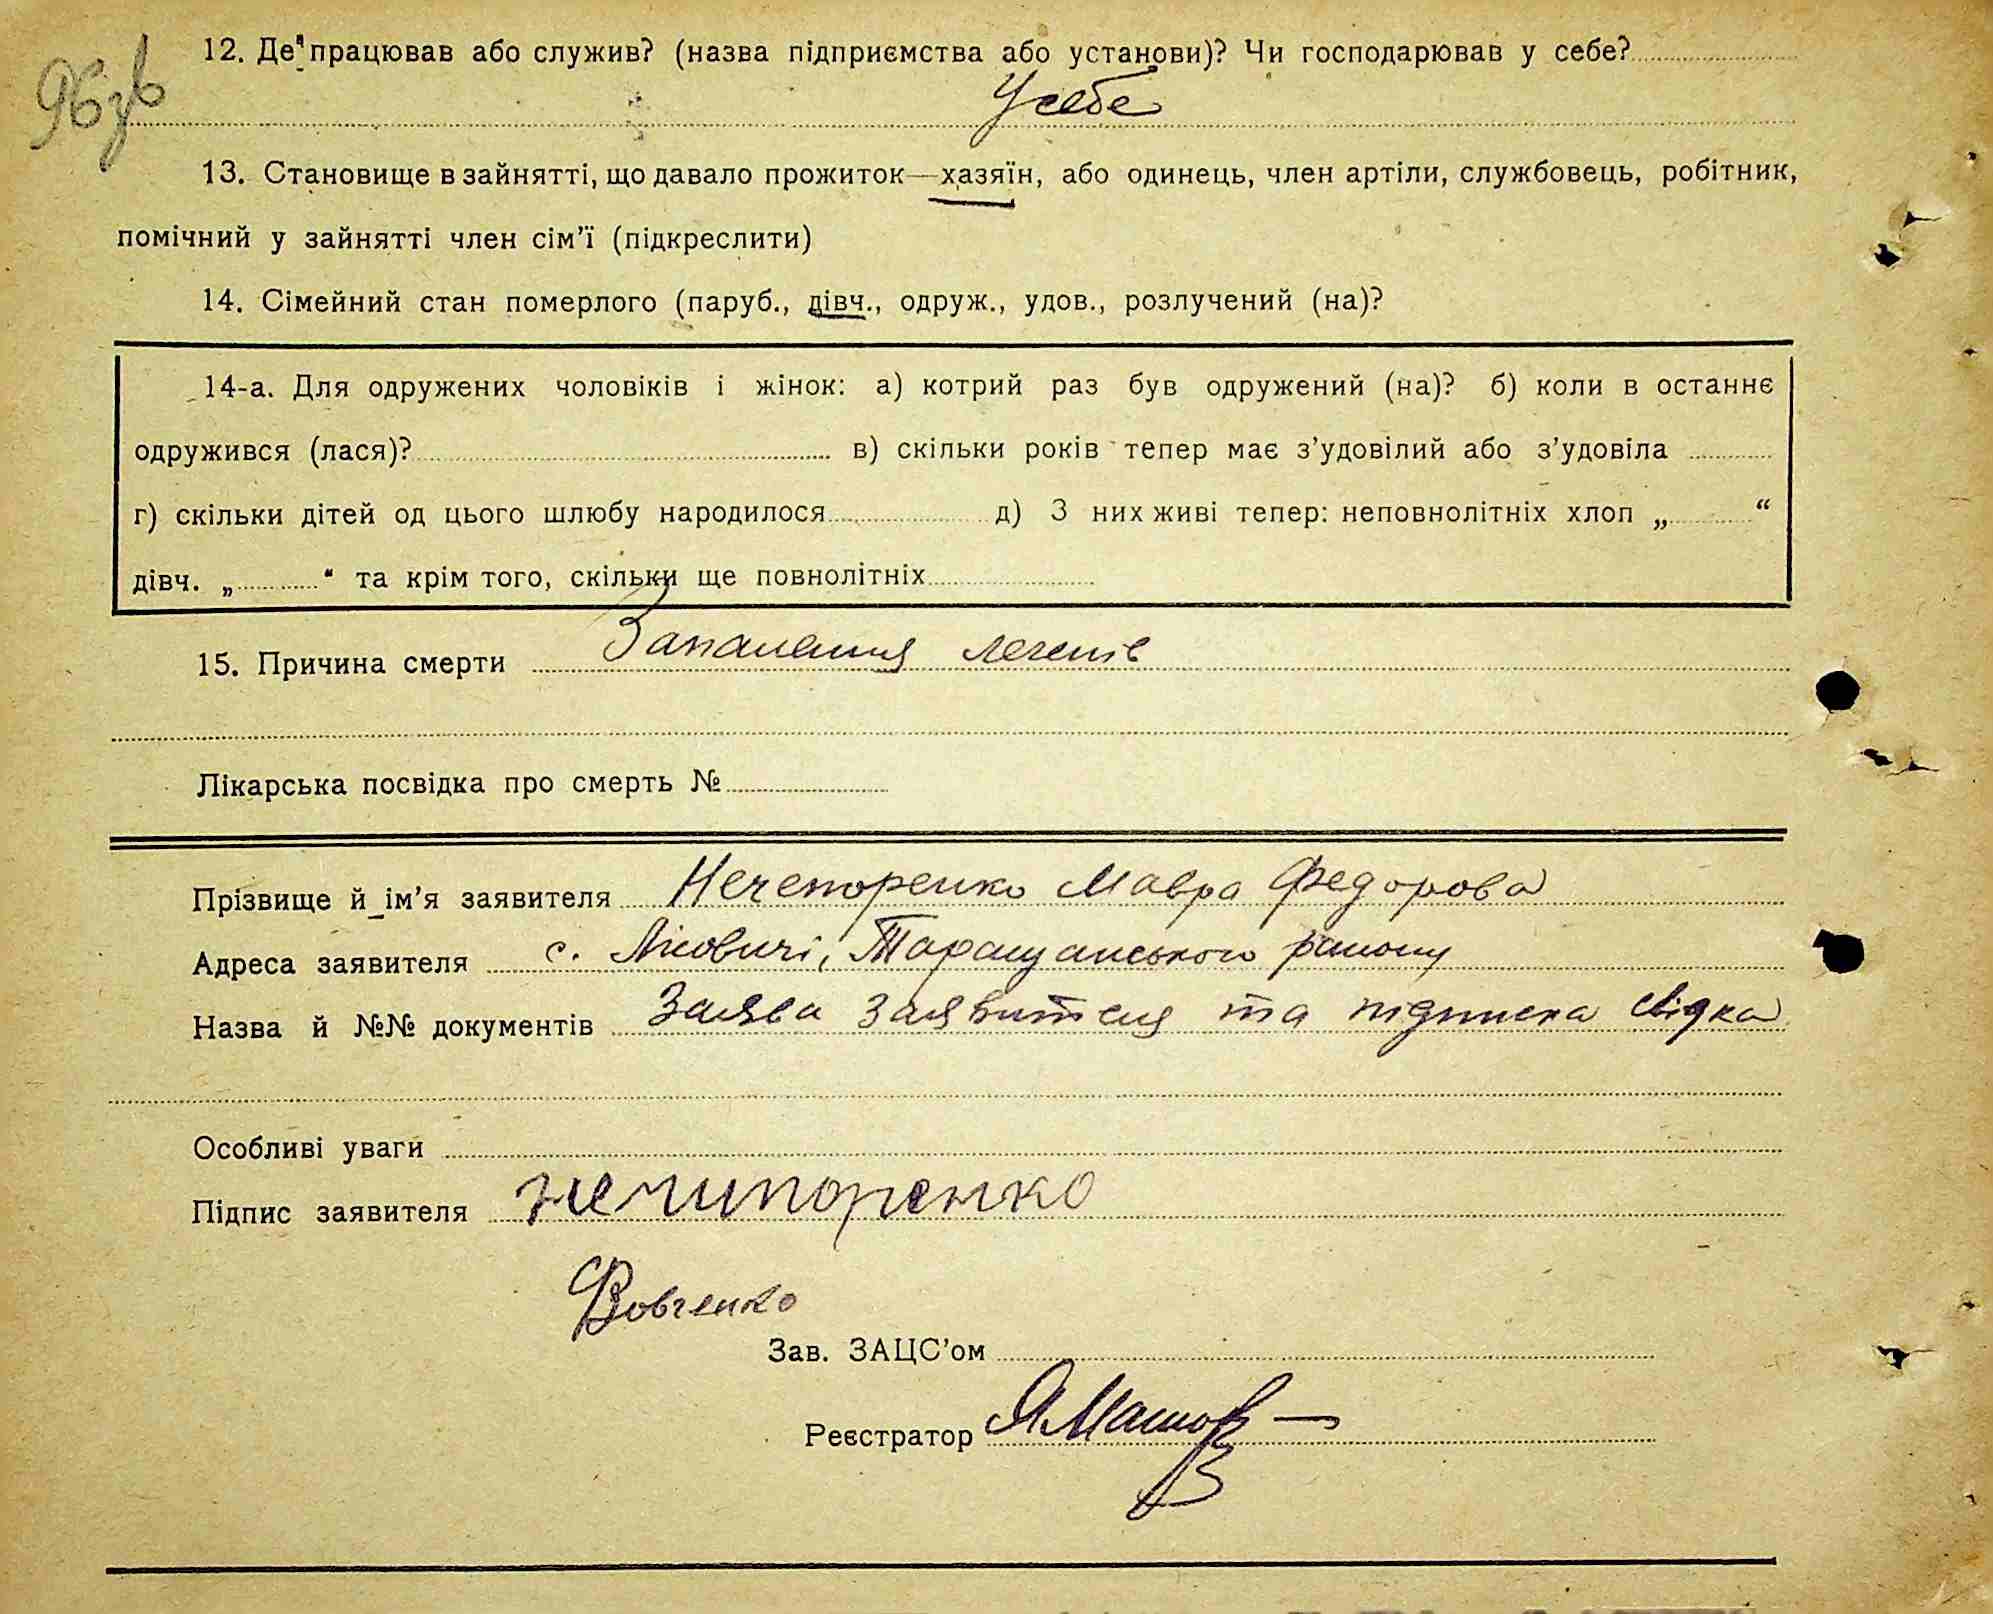 96 зв
12. Де працював або служив? (назва підприємства або установи)? Чи господарював у себе?
У себе
13. Становище в зайнятті, що давало прожиток—хазяїн, або одинець, член артіли, службовець, робітник,
помічний у зайнятті член сім’ї (підкреслити)
14. Сімейний стан померлого (паруб., дівч., одруж., удов., розлучений (на)?
14-а. Для одружених чоловіків і жінок: а) котрий раз був одружений (на)? б) коли в останнє
одружився (лася)? в) скільки років тепер має з’удовілий або з’удовіла
г) скільки дітей од цього шлюбу народилося д) З них живі тепер: неповнолітніх хлоп „ “
дівч. „ “ та крім того, скільки ще повнолітніх
15. Причина смерти Запалення легенів
Лікарська посвідка про смерть №
Прізвище й ім’я заявителя Нечепоренко Мавра Федорова
Адреса заявителя с. Лісовичі, Таращанського району
Назва й №№ документів Заява заявителя та підписка свідка
Особливі уваги
Підпис заявителя нечипоренко
Вовченко
Зав. ЗАЦС’ом
Реєстратор